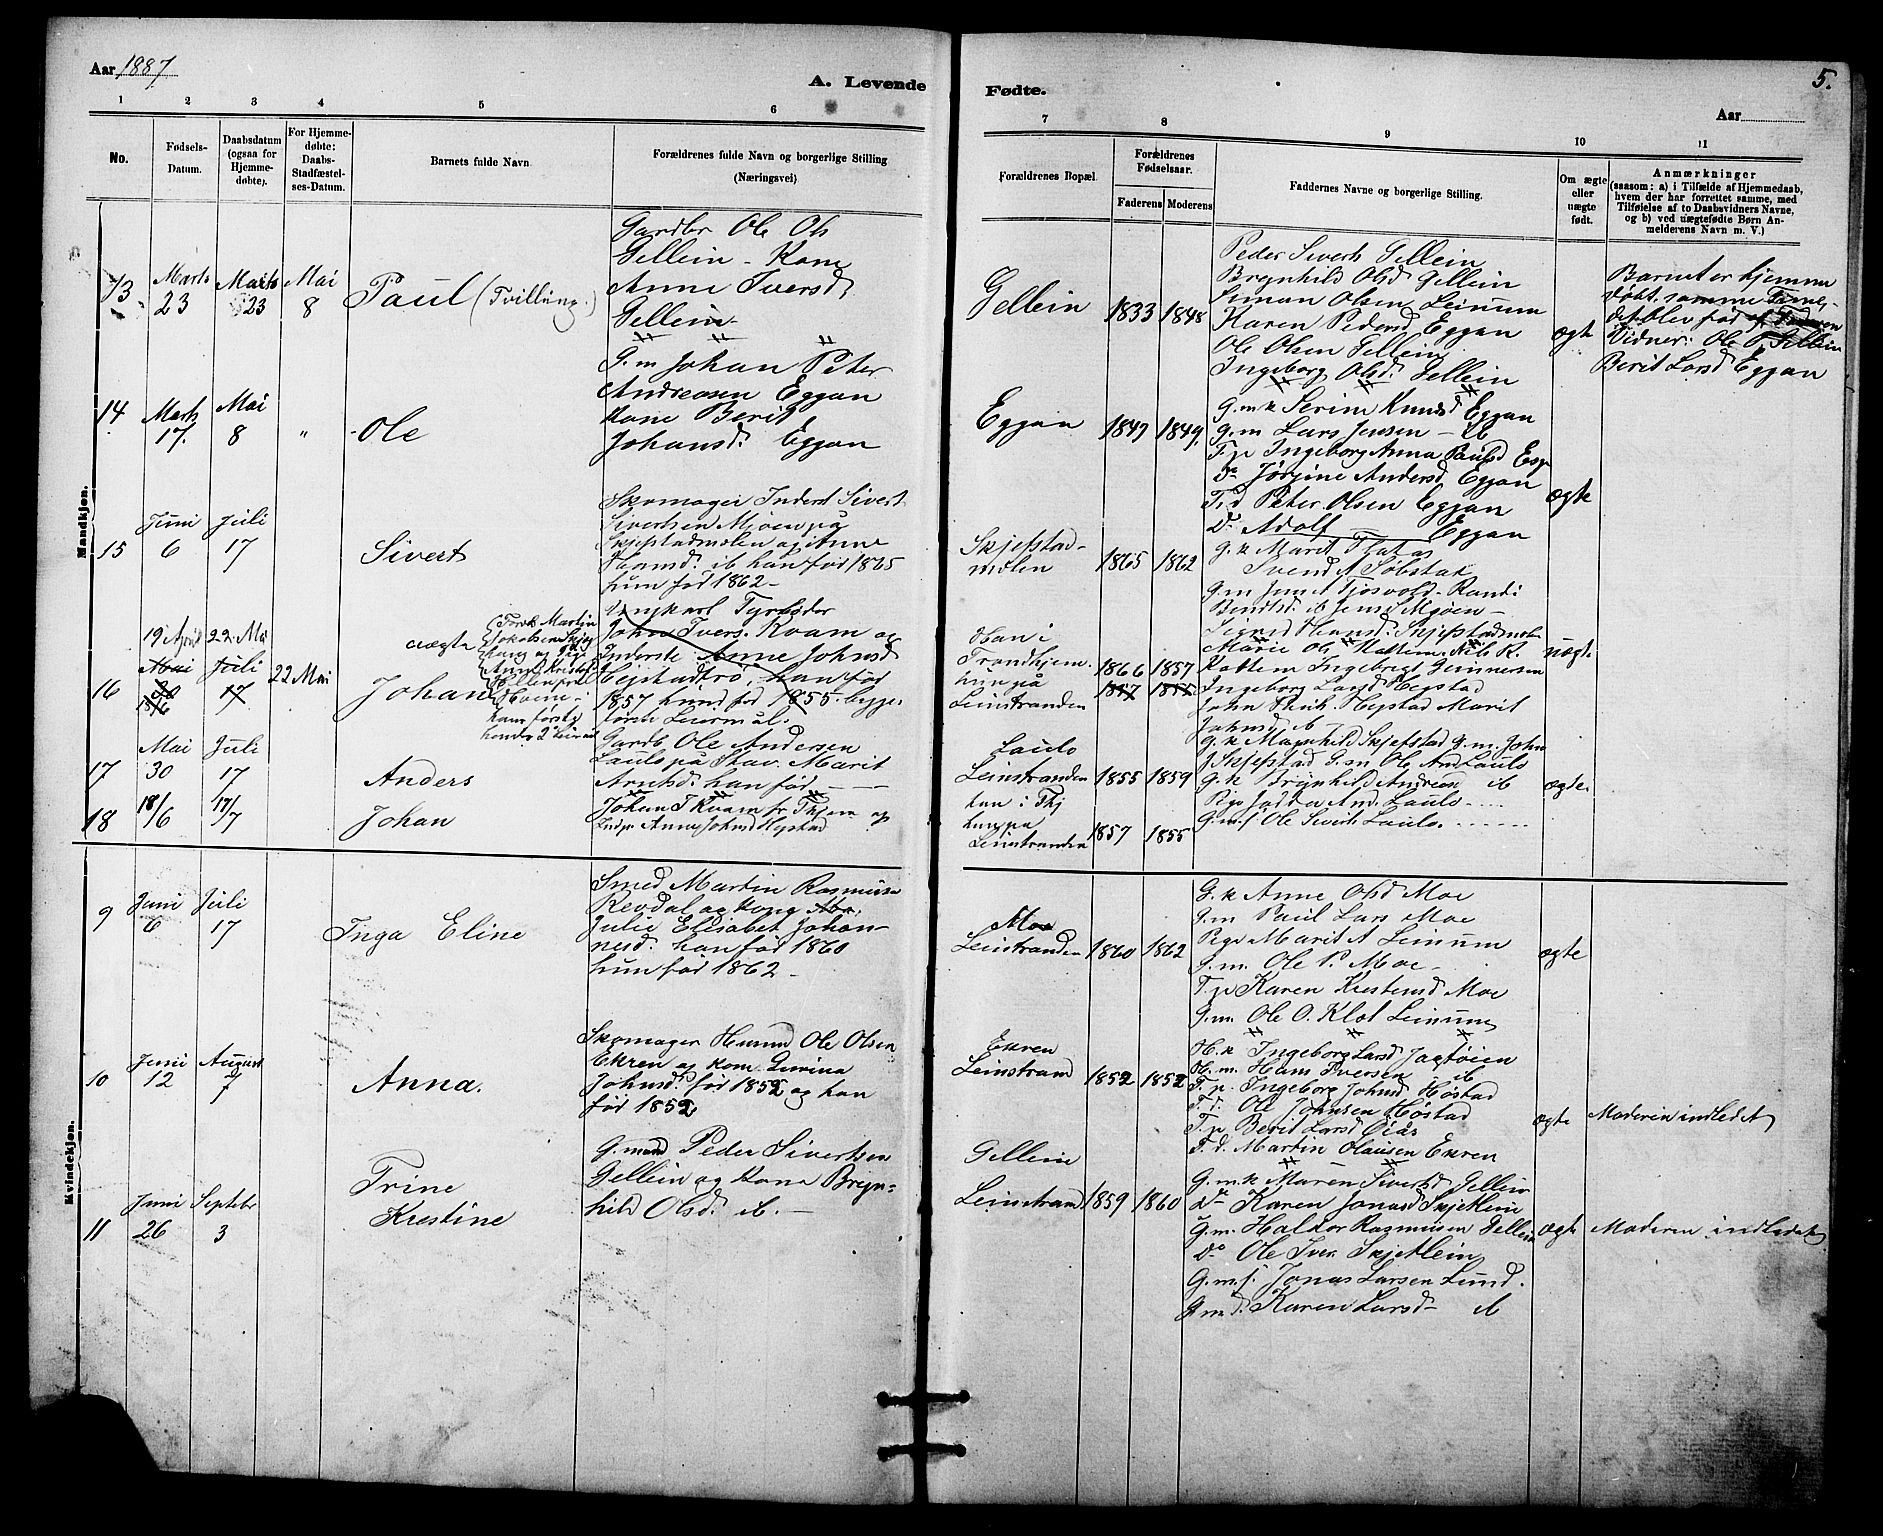 Aar 1887
A. Levende
1 2 3 4 5 6
No.
Fødsels-
Datum.
Daabsdatum
(ogsaa for
Hjemme-
døbte).
For Hjemme-
døbte:
Daabs-
Stadfæstel-
ses-Datum.
Barnets fulde Navn
Forældrenes fulde Navn og borgerlige Stilling
(Næringsvei)
Mandkjøn.
13
Marts
23
Marts
23
Mai
8
Paul (Tvilling)
Gardbr Ole Ols
Gellein - Kone
Anne Iversd
Gellein
14
Marts
17.
Mai
8
"
Ole
G.m Johan Peter
Andreasen Eggan
Kone Berit
Johansd. Eggan
15
Juni
6
Juli
17
Sivert
Skomager Inderst Sivert
Sivertsen Mjøen på
Skjefstadmolen og
ib han før 1865
hun før 1862 -
16
19 April
Mai
22 Mai
Juli
17
22 Mai
uægte
Johan
Martin
Ungkarl
John Ivers. Kvam og
Inderste Anne Johnsd
han før
1857 hun før 1855
første Leiermål.
17
Mai
30
Juli
17
Anders
Gardb Ole Andersen
Laulo på Marit
Arntsd. han før
18
18/6
17/7
Johan
Johan I Kvam
Anne Johnsd Hystad
Kvindekjøn.
9
Juni
6
Juli
17
Inga Eline
Smed Martin Rasmusen
Revdal og Kone
Julie Elisabet Johan-
nesd. han før 1860
hun før 1862 -
10
Juni
12
August
7
Anna.
Skomager Husmd Ole Olsen
Ekren og Kone
Johnsd. før 1852 og han
før 1852
11
Juni
26
Septebr
3
Trine
Kristine
G.mand Peder Sivertsen
Gellein og Kone Bryn-
hild Olsd. ib. -
Fødte.
5.
Aar
7 8 9 10 11
Forældrenes Bopæl.
Forældrenes
Fødselsaar.
Faderens Moderens
Faddernes Navne og borgerlige Stilling.
Om ægte
eller
uægte
født.
Anmærkninger
(saasom: a) i Tilfælde af Hjemmedaab,
hvem der har forrettet samme, med
Tilføielse af to Daabsvidners Navne,
og b) ved uægtefødte Børn An-
melderens Navn m. V.)
Gellein
1833
1848
Peder Siverts Gellein
Brynhild Olsd Gellein
Simon Olsen Leinum
Karen Pedersd Eggan
Ole Olsen Gellein
Ingeborg Olsd. Gellein
ægte
Barnet er hjemme
døbt. samme
det blev før
Vidner: Ole O Gellein
Berit Larsd Eggan
Eggan
1849
1849.
G.m k Serine Knudsd Eggan
G.m Lars Jensen - ib
T.p Ingeborg Anna Paulsd
Do Jørgine Andersd Eggan
T.d Peter Olsen Eggan
Do Adolf Eggan
ægte
Skjefstad-
molen
1865
1862
G.k Marit
Svend A Søbstad
G.m Jens A Randi
Bendtsd. ib Jens Mjøen -
Sigrid Hansd. Skjefstadmolen
Han i
Trondhjem
hun på
Leinstranden
1866
1857
1857
1855
Marie Ols Kattem. Nils K.
Kattem Ingebrigt
Ingeborg Larsd Hystad
John Hystad Marit
Johnsd ib
uægte
Laulo
Leinstranden
1855
1859
G.k Magnhild Skjefstad G.m. John
Skjefstad G.m Ole And Laulo
G.k Brynhild Andreasd ib
Pige And. Laulo
G.m.s Ole Siverts Laulo.
ægte
han i Thj
hun pa
Leinstranden
1857
1855
Moe
Leinstranden
1860
1862
G.k Anne Olsd Moe
G.m Paul Lars Moe
Pige Marit A Leinum
G.m. Ole P. Moe -
T.p Karen Kristensd Moe
G.m. Ole O. Klet Leinum
ægte
Ekren
Leinstrand
1852
1852
H.k Ingeborg Larsd Jagtøien
H.m. Hans Iversen ib
T.p. Ingeborg Johnsd Høstad
T.d. Ole Johnsen Høstad
T.p Berit Larsd
T.d. Martin Olausen Ekren
ægte
Moderen indledet
Gellein
Leinstrand
1859
1860
G.m.k Maren Sivertsd Gellein
Do Karen Jonasd Skjetlein
G.m. Haldor Rasmusen Gellein
Do Ole Iver. Skjetlein
G.m.s. Jonas Larsen Lund.
G.m.d. Karen Larsd - ib
ægte
Moderen indledet